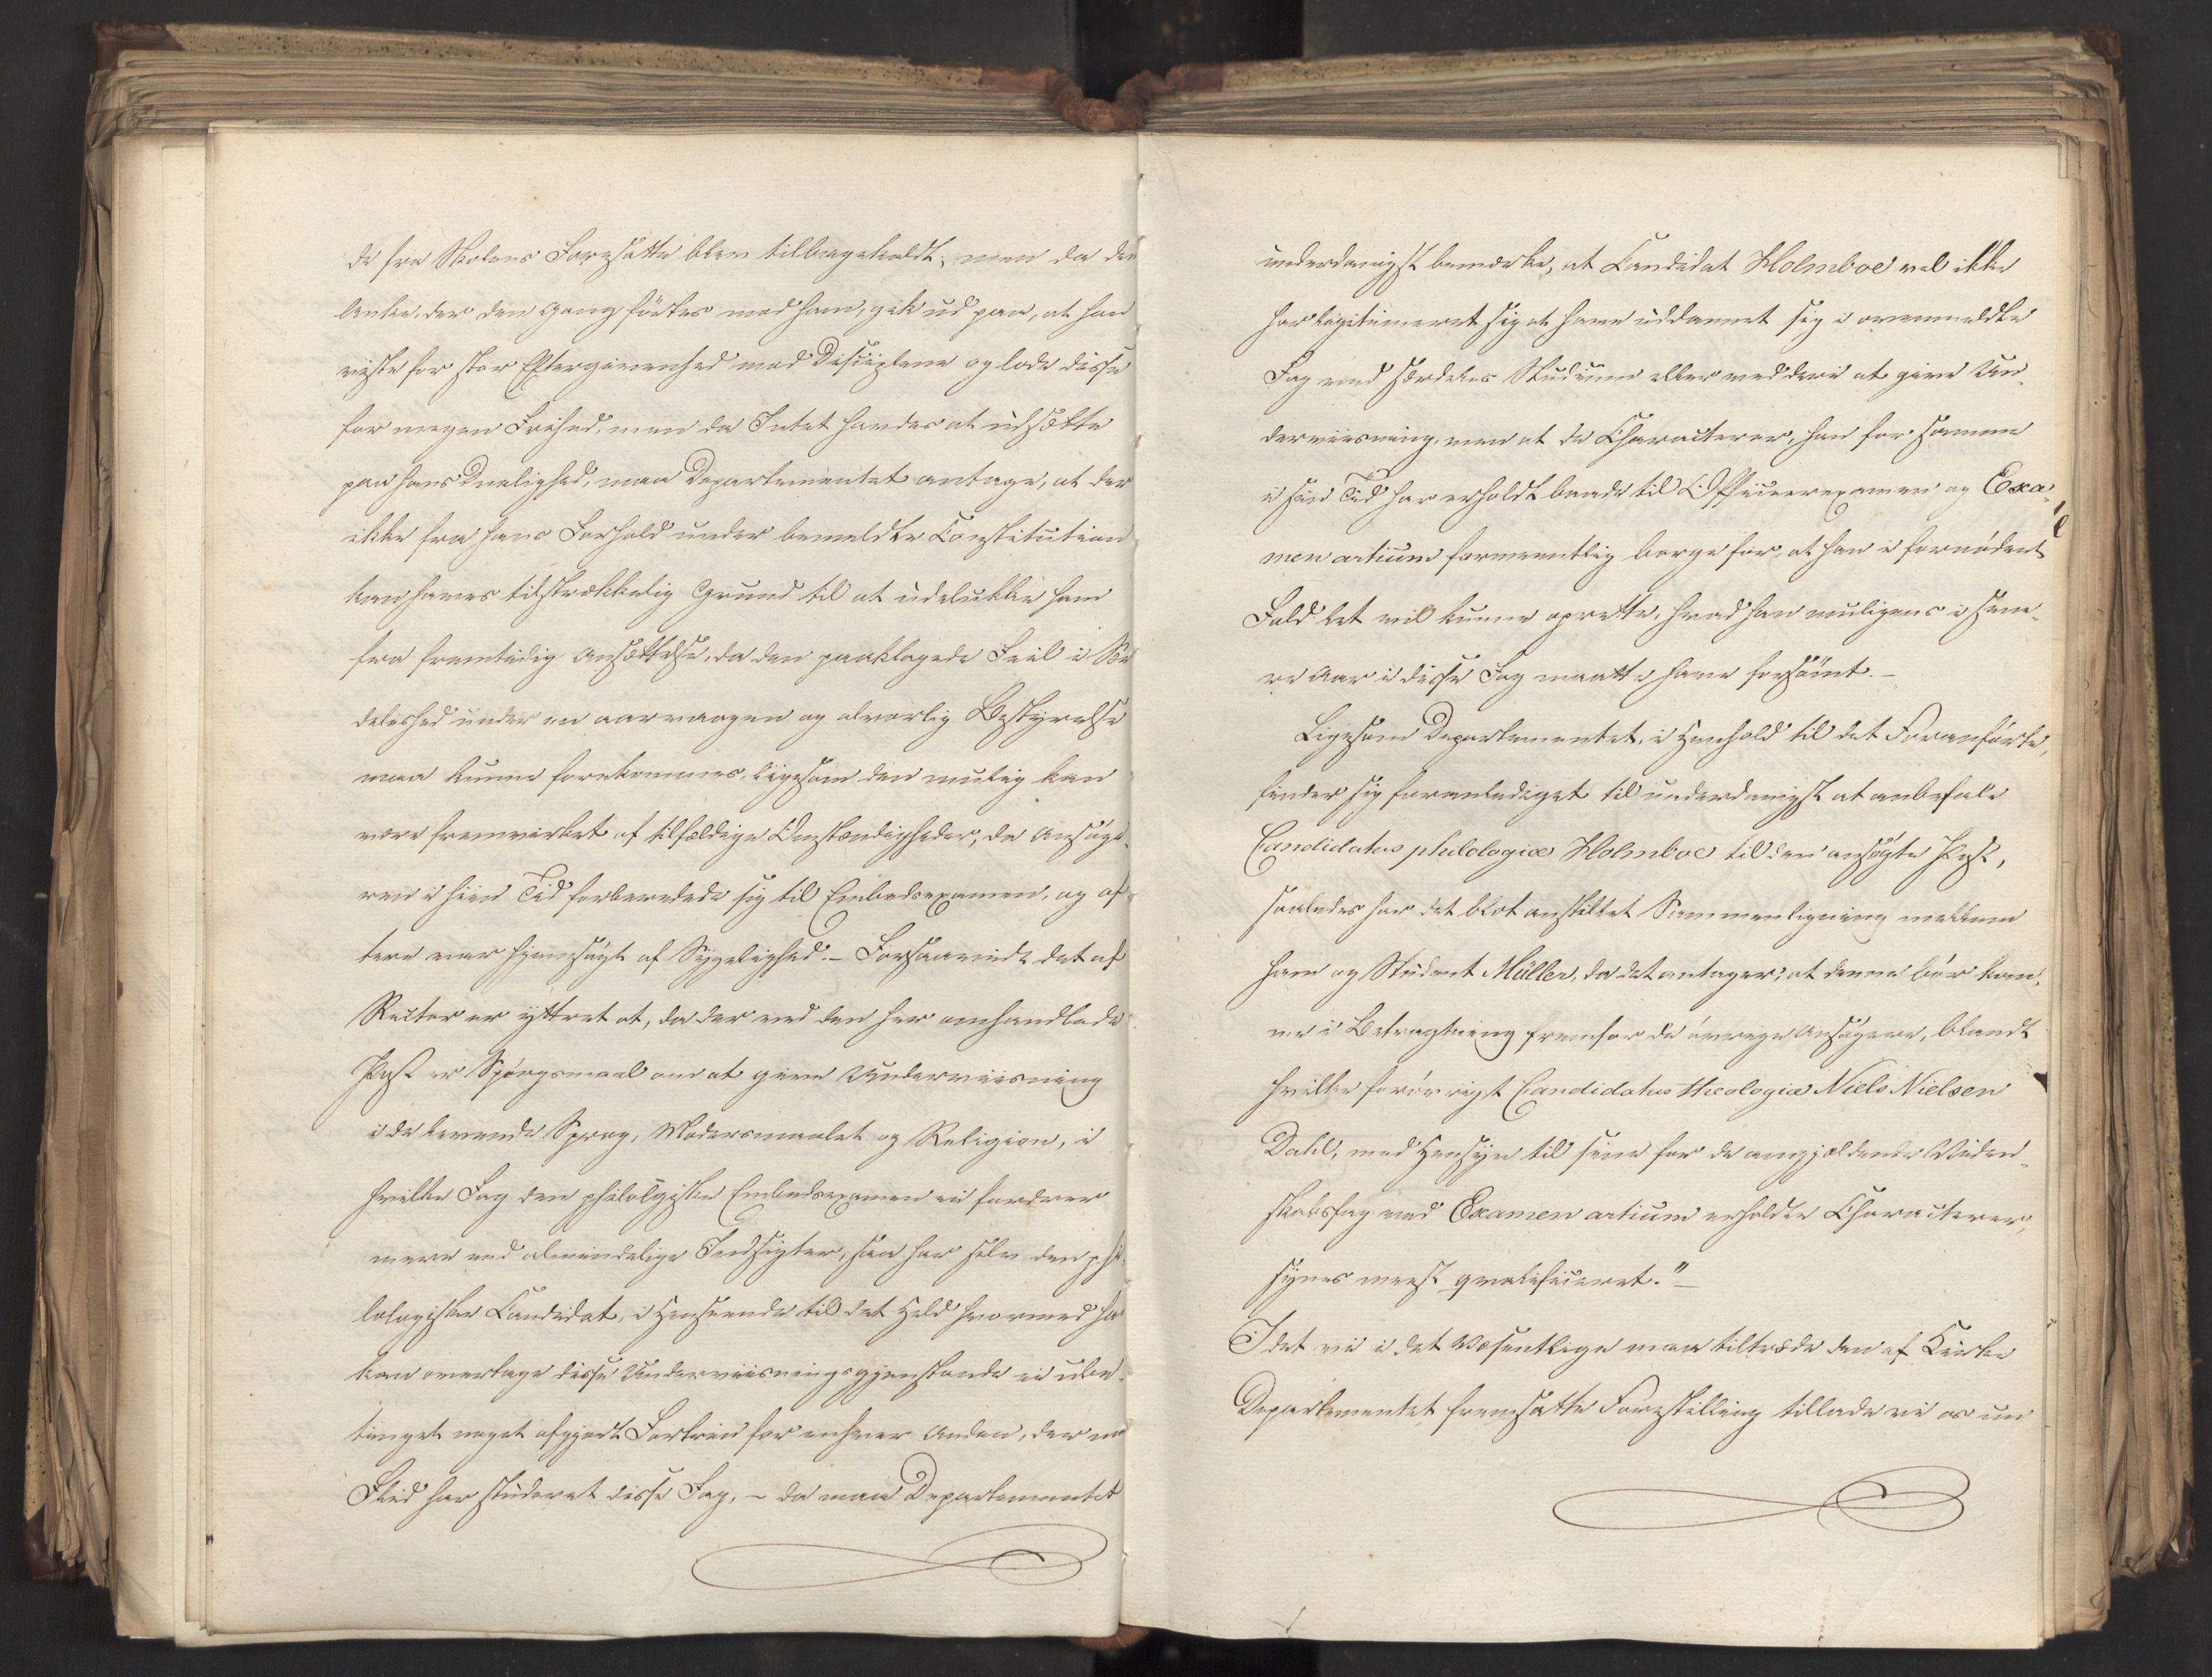 de fra Skolens Foresatte blev tilbagekaldt; men da den
Anke, der den Gang førtes mod ham, gik ud paa, at han
viste for stor Eftergivenhed mod Disciplene og lode disse
for megen Frihed, men da Intet havdes at udsætte
paa hans Duelighed, maa Departementet antage, at der
ikke fra hans Forhold under bemeldte Constitution
kan haves tilstrækkelig Grund til at udelukke ham
fra fremtidig Ansættelse, da den paaklagede Feil i Sæ
deleshed under en aarvaagen og alvorlig Bestyrelse
maa kunne forekommes, ligesom den mulig kan
være fremvirket af tilfældige Omstændigheder, da Ansøge-
ren i hiin Tid forberedede sig til Embedsexamen, og of-
tere var hjemsøgt af Sygelighed. – Forsaavidt det af
Rector er yttret at, da der ved den her omhandlede
Post er Spørgsmaal om at give Underviisning
i de levende Sprog, Modersmaalet og Religion, i
hvilke Fag den philolgiske Embedsexamen ei fordrer
mere end almindelige Indsigter, saa har selv den phi-
lologiske Candidat, i Henseende til det Held hvormed han
kan overtage disse Underviisningsgjenstande ei ube-
tinget noget afgjort Fortrin for enhver Anden, der med
Flid har studeret disse Fag, – da maa Departementet
underdanigst bemærke, at Candidat Holmboe vel ikke
har legitimeret sig at have uddannet sig i ovenmeldte
Fag ved særdeles Studium eller ved deri at give Un-
derviisning, men at de Characterer, han for samme
i sin Tid har erholdt baade til Officierexamen og Exa-
men artium formeentlig borge for, at han i fornødent
Fald let vil kunne oprette, hvad han muligens i sene-
re Aar i disse Fag maatte have forsømt. –
Ligesom Departementet, i Henhold til det Foranførte,
finder sig foranlediget til underdanigst at anbefale
Candidatus philologiæ Holmboe til den ansøgte Post,
saaledes har det blot anstillet Sammenligning mellem
ham og Student Müller, da det antager, at denne bør kom-
me i Betragtning fremfor de øvrige Ansøgere, blandt
hvilke forøvrigt Candidatus theologiæ Niels Nielsen
Dahl, med Hensyn til sine for de angjældende Viden-
skabsfag ved Examen artium erholdte Characterer,
synes meest qvalificeret." –
Idet vi i det Væsentlige maa tiltræde den af Kirke
Departementet fremsatte Forestilling tillade vi os un